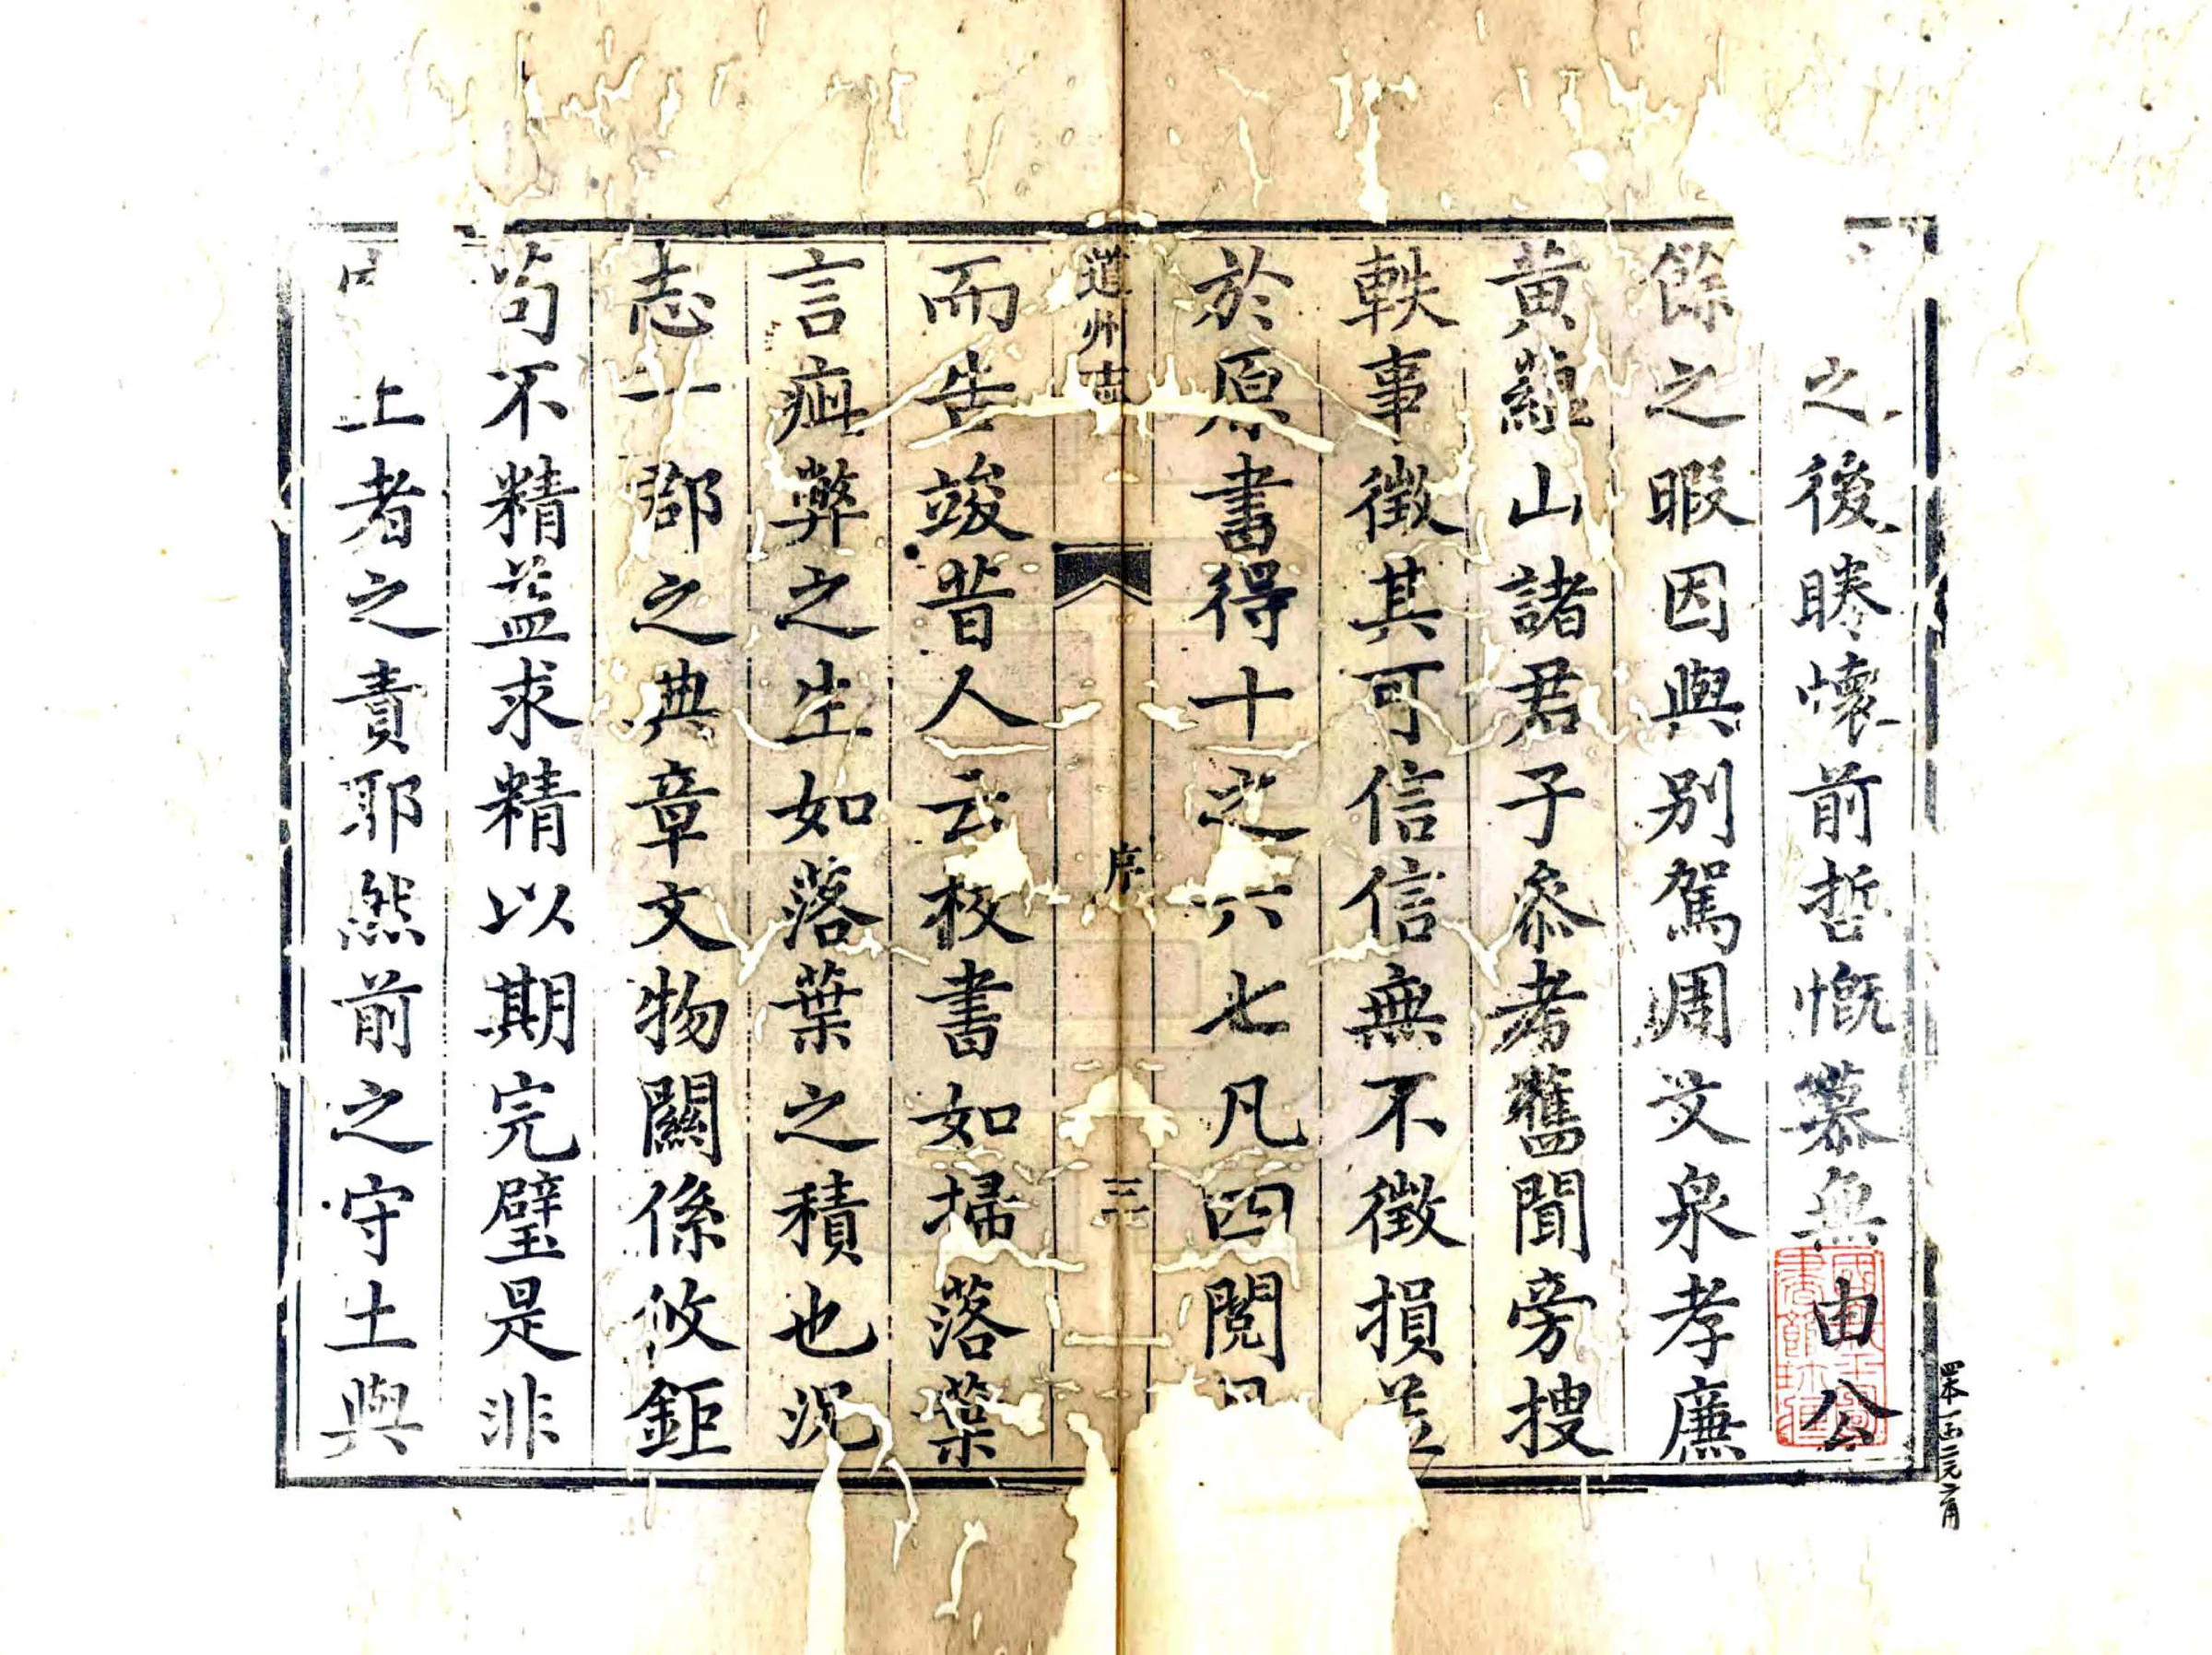 之後睠懷前哲慨慕無由公
餘之暇因與別駕周文泉孝廉
黃蘊山諸君子叅考舊聞旁搜
軼事徵其可信信無不徵損益
於原書得十之六七凡四閱月
道州志
序
三
而告竣昔人云校書如掃落葉
言疵弊之生如落葉之積也況
志一郡之典章文物關係攸鉅
苟不精益求精以期完璧是非
上者之責耶然前之守土與
四本一函二元六角